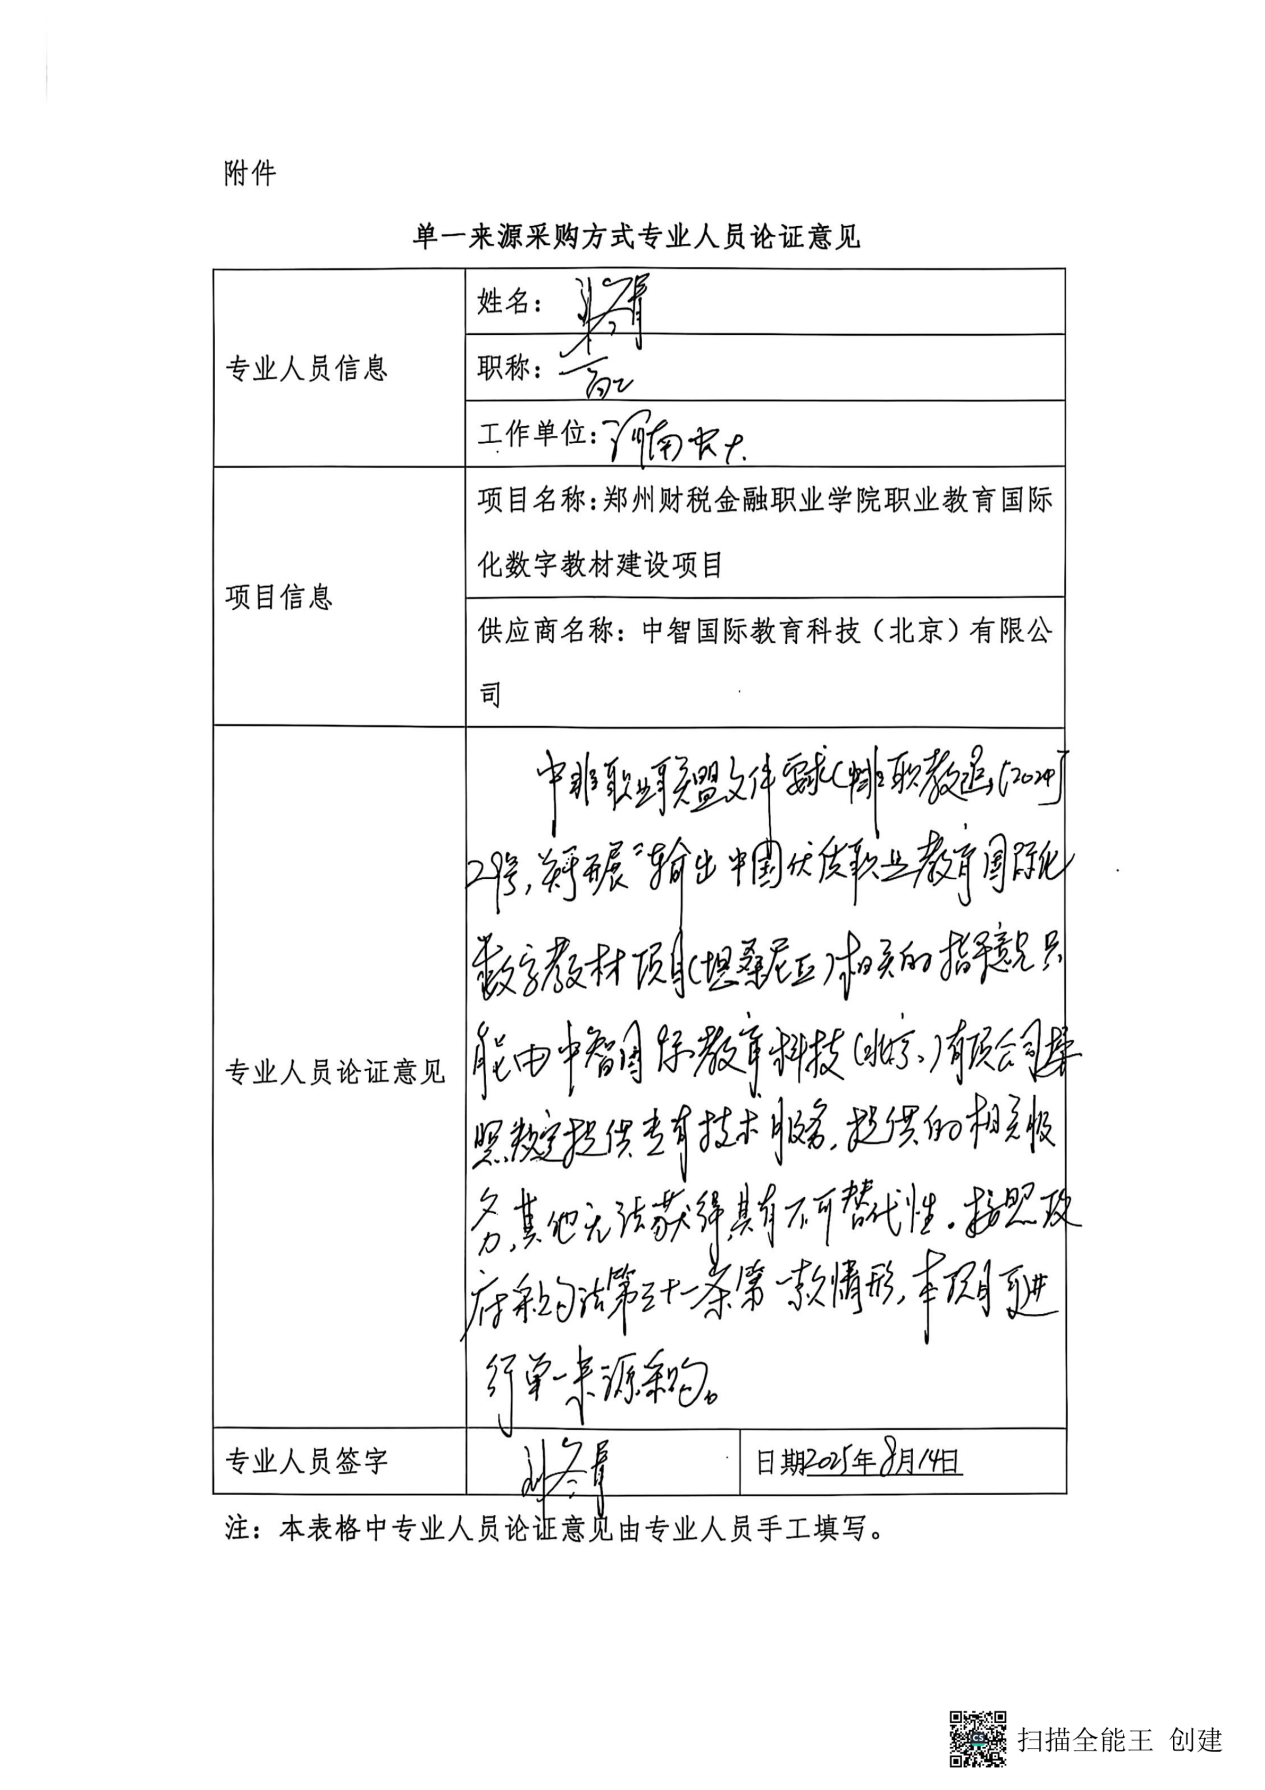 附件
单一来源采购方式专业人员论证意见
专业人员信息
姓名：
职称：高工
工作单位：河南农大
项目信息
项目名称：郑州财税金融职业学院职业教育国际
化数字教材建设项目
供应商名称：中智国际教育科技（北京）有限公
司
专业人员论证意见
中非职业联盟文件要求(中非职教函[2024]
29号,关于开展“输出中国优质职业教育国际化
数字教材项目(坦桑尼亚)相关的指导意见只
能由中智国际教育科技(北京)有限公司按
照规定提供专有技术服务,提供的相关服
务,其他无法获得,具有不可替代性。按照政
府采购法第三十一条第一款情形,本项目可进
行单一来源采购。
专业人员签字
日期2025年8月14日
注：本表格中专业人员论证意见由专业人员手工填写。
扫描全能王 创建